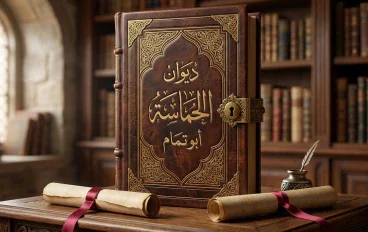 ديوان
الحماسة
أبو تمام